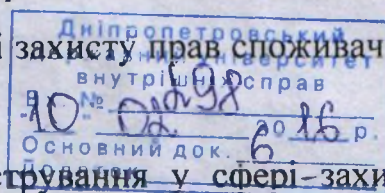 і захисту прав споживач
Дніпропетровський
університет
внутрішніх справ
Вх № 298
"10" 02 2016 р.
Основний док. 6
у сфері захи